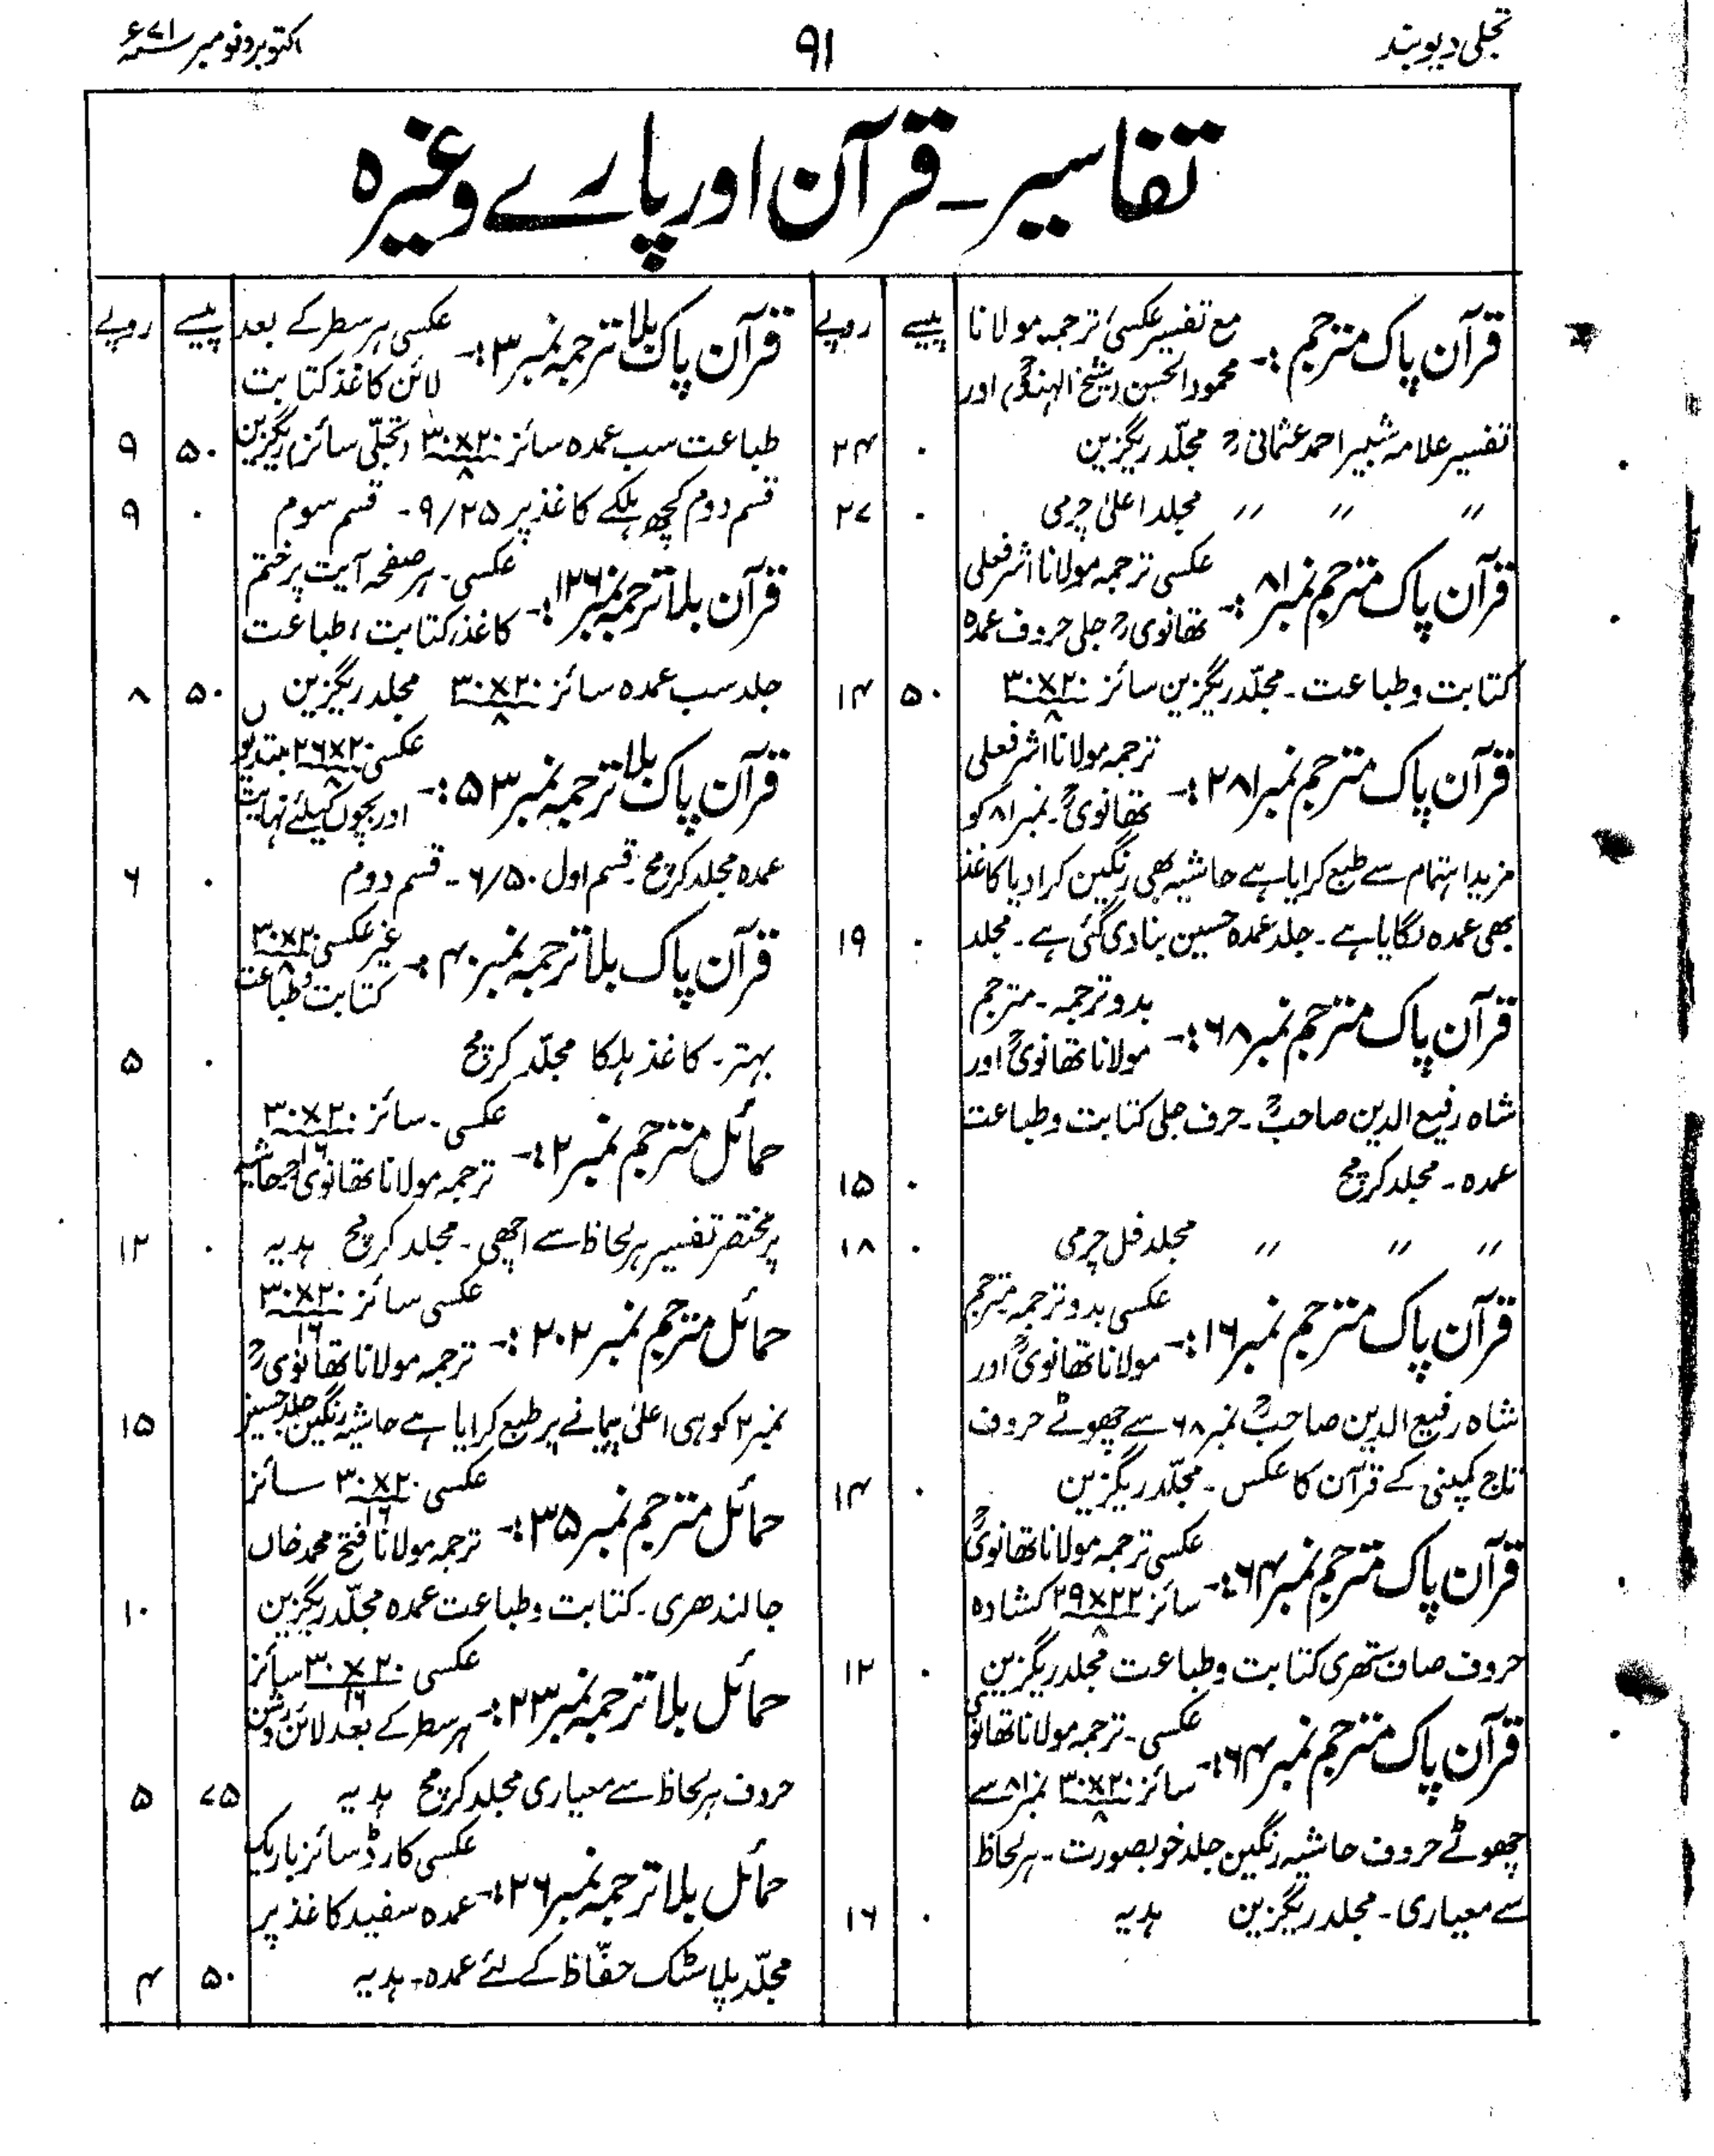 تجلی دیوبند
۹۱
اکتوبر و نومبر ۷۱ء
تفاسیر۔ قرآن اور پارے وغیرہ
پیسے روپے
قرآن پاک مترجم :- مع تفسیر عکسی، ترجمہ مولانا
محمود الحسن (شیخ الہندؒ) اور
تفسیر علامہ شبیر احمد عثمانیؒ مجلّد ریگزین ۰ ۲۴
〃 〃 〃 مجلد اعلیٰ چرمی ۰ ۲۷
قرآن پاک مترجم نمبر ۸۱ :- عکسی ترجمہ مولانا اشرفعلی
تھانویؒ جلی حروف عمدہ
کتابت و طباعت۔ مجلّد ریگزین سائز ۲۰×۳۰/۸ ۵۰ ۱۴
قرآن پاک مترجم نمبر ۲۸۱ :- ترجمہ مولانا اشرفعلی
تھانویؒ۔ نمبر ۸۱ کو
مزید اہتمام سے طبع کرایا ہے حاشیہ بھی رنگین کرا دیا کاغذ
بھی عمدہ لگایا ہے۔ جلد عمدہ حسین بنا دی گئی ہے۔ مجلد ۰ ۱۹
قرآن پاک مترجم نمبر ۶۸ :- بدو ترجمہ۔ مترجم
مولانا تھانویؒ اور
شاہ رفیع الدین صاحبؒ۔ حرف جلی کتابت و طباعت
عمدہ۔ مجلد کرمچ ۰ ۱۵
〃 〃 〃 مجلد فل چرمی ۰ ۱۸
قرآن پاک مترجم نمبر ۱۶ :- عکسی بدو ترجمہ مترجم
مولانا تھانویؒ اور
شاہ رفیع الدین صاحبؒ نمبر ۶۸ سے چھوٹے حروف
تاج کمپنی کے قرآن کا عکس۔ مجلّد ریگزین ۰ ۱۴
قرآن پاک مترجم نمبر ۶۴ :- عکسی ترجمہ مولانا تھانویؒ
سائز ۲۲×۲۹/۸ کشادہ
حروف صاف ستھری کتابت و طباعت مجلد ریگزین ۰ ۱۲
قرآن پاک مترجم نمبر ۱۶۴ :- عکسی۔ ترجمہ مولانا تھانوی
سائز ۲۰×۳۰/۸ نمبر ۸۱ سے
چھوٹے حروف حاشیہ رنگین جلد خوبصورت۔ ہر لحاظ
سے معیاری۔ مجلد ریگزین ہدیہ ۰ ۱۶
پیسے روپے
قرآن پاک بلا ترجمہ نمبر ۳ :- عکسی ہر سطر کے بعد
لائن کاغذ کتابت
طباعت سب عمدہ سائز ۲۰×۳۰/۸ (تجلّی سائز) ریگزین ۵۰ ۹
قسم دوم کچھ ہلکے کاغذ پر ۹/۲۵۔ قسم سوم ۰ ۹
قرآن بلا ترجمہ نمبر ۱۲۶ :- عکسی۔ ہر صفحہ آیت پر ختم
کاغذ، کتابت، طباعت
جلد سب عمدہ سائز ۲۰×۳۰/۸ مجلد ریگزین ۵۰ ۸
قرآن پاک بلا ترجمہ نمبر ۵۳ :- عکسی ۲۰×۲۶/۸ مبتدیوں
اور بچوں کیلئے نہایت
عمدہ مجلد کرمچ۔ قسم اول ۶/۵۰۔ قسم دوم ۰ ۶
قرآن پاک بلا ترجمہ نمبر ۴۰ :- غیر عکسی ۲۰×۳۰/۸
کتابت و طباعت
بہتر۔ کاغذ ہلکا مجلّد کرمچ ۰ ۵
حمائل مترجم نمبر ۲ :- عکسی۔ سائز ۲۰×۳۰/۱۶
ترجمہ مولانا تھانویؒ حاشیہ
پر مختصر تفسیر ہر لحاظ سے اچھی۔ مجلد کرمچ ہدیہ ۰ ۱۲
حمائل مترجم نمبر ۲۰۲ :- عکسی سائز ۲۰×۳۰/۱۶
ترجمہ مولانا تھانویؒ
نمبر ۲ کو ہی اعلیٰ پیمانے پر طبع کرایا ہے حاشیہ رنگین جلد حسین ۱۵
حمائل مترجم نمبر ۳۵ :- عکسی ۲۰×۳۰/۱۶ سائز
ترجمہ مولانا فتح محمد خاں
جالندھری۔ کتابت و طباعت عمدہ مجلّد ریگزین ۱۰
حمائل بلا ترجمہ نمبر ۲۳ :- عکسی ۲۰×۳۰/۱۶ سائز
ہر سطر کے بعد لائن روشن
حروف ہر لحاظ سے معیاری مجلد کرمچ ہدیہ ۷۵ ۵
حمائل بلا ترجمہ نمبر ۲۶ :- عکسی کارڈ سائز باریک
عمدہ سفید کاغذ پر
مجلّد پلاسٹک حفّاظ کے لئے عمدہ۔ ہدیہ ۵۰ ۴